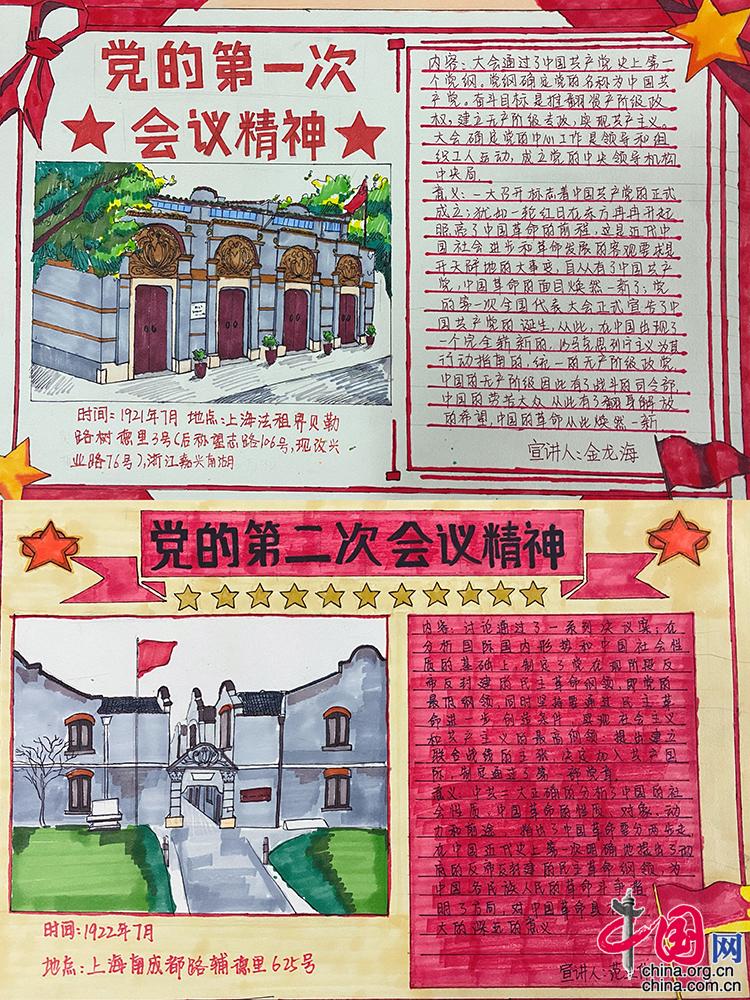 党的第一次
会议精神
时间:1921年7月 地点:上海法租界贝勒
路树德里3号(后称望志路106号,现改兴
业路76号),浙江嘉兴南湖
内容:大会通过了中国共产党史上第一
个党纲。党纲确定党的名称为中国共
产党。奋斗目标是推翻资产阶级政
权,建立无产阶级专政,实现共产主义。
大会确定党的中心工作是领导和组
织工人运动,成立党的中央领导机构
中央局。
意义:一大召开标志着中国共产党的正式
成立;犹如一轮红日在东方冉冉升起
照亮了中国革命的前程,这是近代中
国社会进步和革命发展的客观要求是
开天辟地的大事变,自从有了中国共产
党,中国革命的面目焕然一新了,党
的第一次全国代表大会正式宣告了中
国共产党的诞生,从此,在中国出现了
一个完全新新的,以马克思列宁主义为其
行动指南的,统一的无产阶级政党,
中国的无产阶级因此有了战斗的司令部,
中国的劳苦大众从此有了翻身解放
的希望,中国的革命从此焕然一新
宣讲人:金龙海
党的第二次会议精神
时间:1922年7月
地点:上海南成都路辅德里625号
内容:讨论通过了一系列决议案;在
分析国际国内形势和中国社会性
质的基础上,制定了党在现阶段反
帝反封建的民主革命纲领,即党的
最低纲领,同时坚持要通过民主革
命进一步创造条件,实现社会主义
和共产主义的最高纲领;提出建立
联合战线的主张,决定加入共产国
际,制定通过了第一部党章。
意义:中共二大正确的分析了中国的社
会性质,中国革命的性质、对象、动
力和前途,指出了中国革命要分两步走,
在中国近代史上第一次明确地提出了彻
底的反帝反封建的民主革命纲领,为
中国各民族人民的革命斗争指
明了方向,对中国革命具
大的深远的意义
宣讲人:范
中国网
china.org.cn
china.com.cn